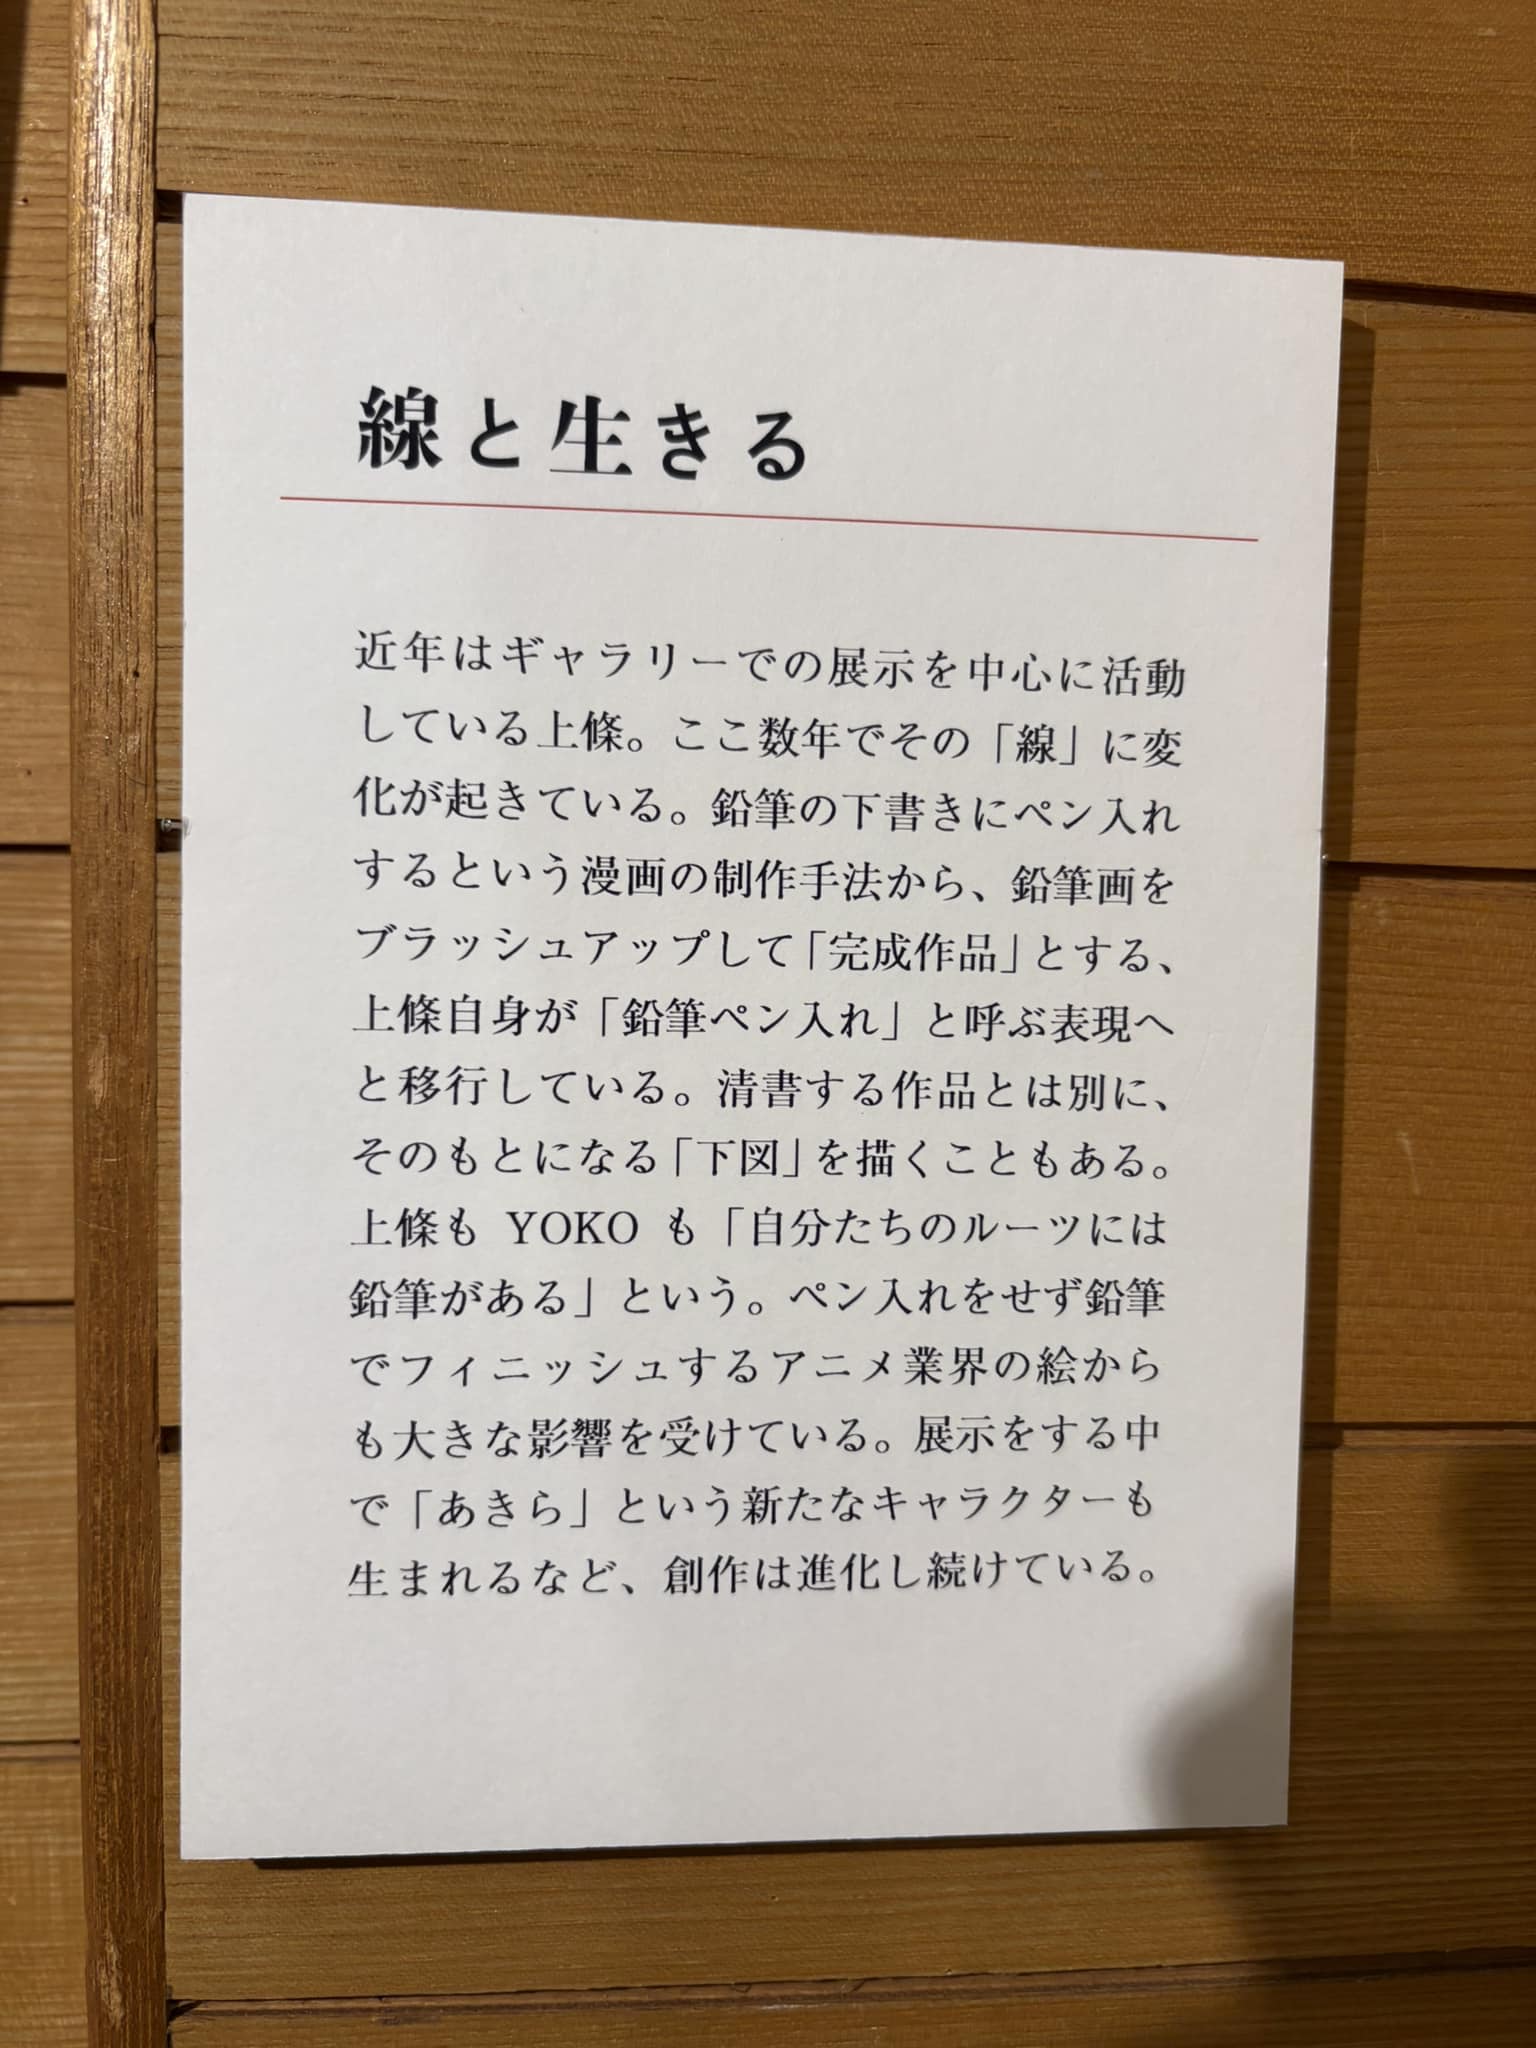 線と生きる
近年はギャラリーでの展示を中心に活動
している上條。ここ数年でその「線」に変
化が起きている。鉛筆の下書きにペン入れ
するという漫画の制作手法から、鉛筆画を
ブラッシュアップして「完成作品」とする、
上條自身が「鉛筆ペン入れ」と呼ぶ表現へ
と移行している。清書する作品とは別に、
そのもとになる「下図」を描くこともある。
上條も YOKO も「自分たちのルーツには
鉛筆がある」という。ペン入れをせず鉛筆
でフィニッシュするアニメ業界の絵から
も大きな影響を受けている。展示をする中
で「あきら」という新たなキャラクターも
生まれるなど、創作は進化し続けている。